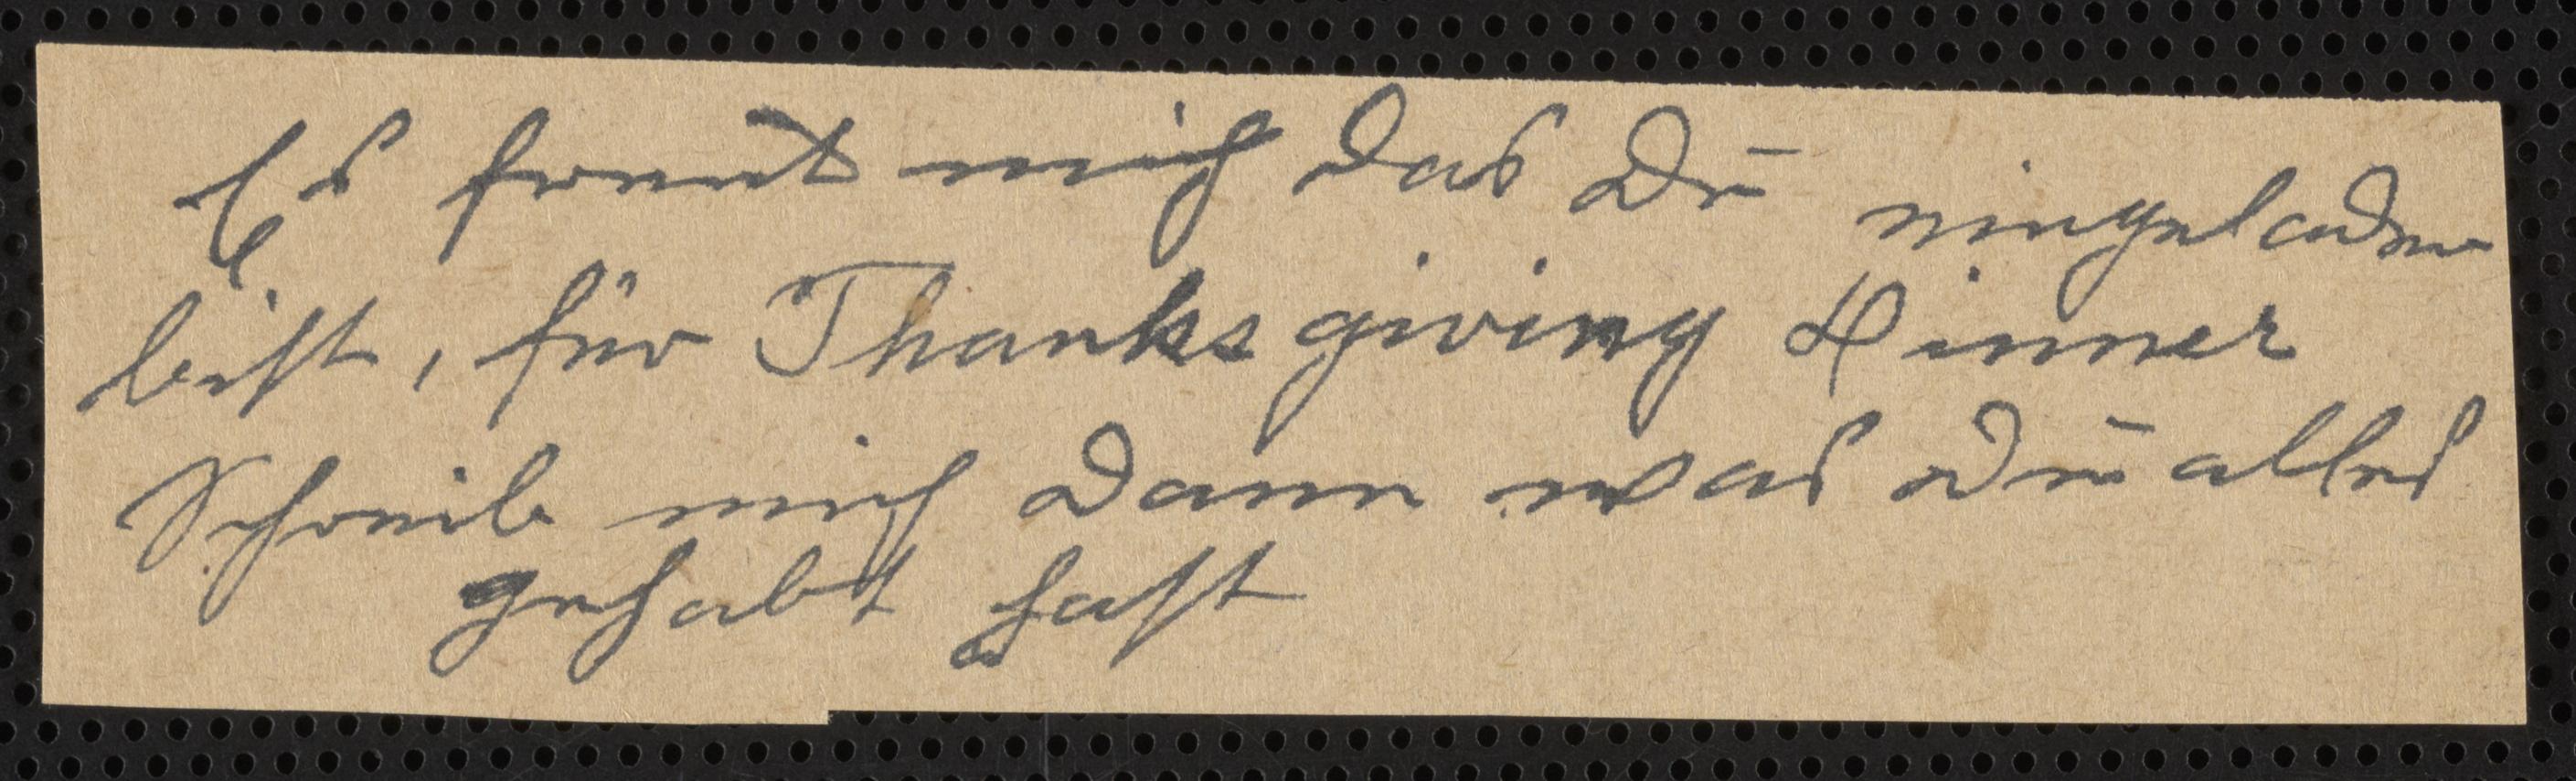 Es freut mich das Du eingeladen
bist, für Thanksgiving Dinner
Schreib mich dann was Du alles
gehabt hast